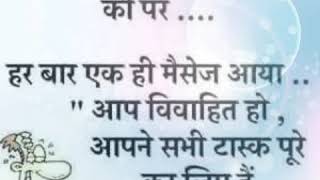 की पर ....
हर बार एक ही मैसेज आया ..
" आप विवाहित हो ,
आपने सभी टास्क पूरे
कर लिए हैं